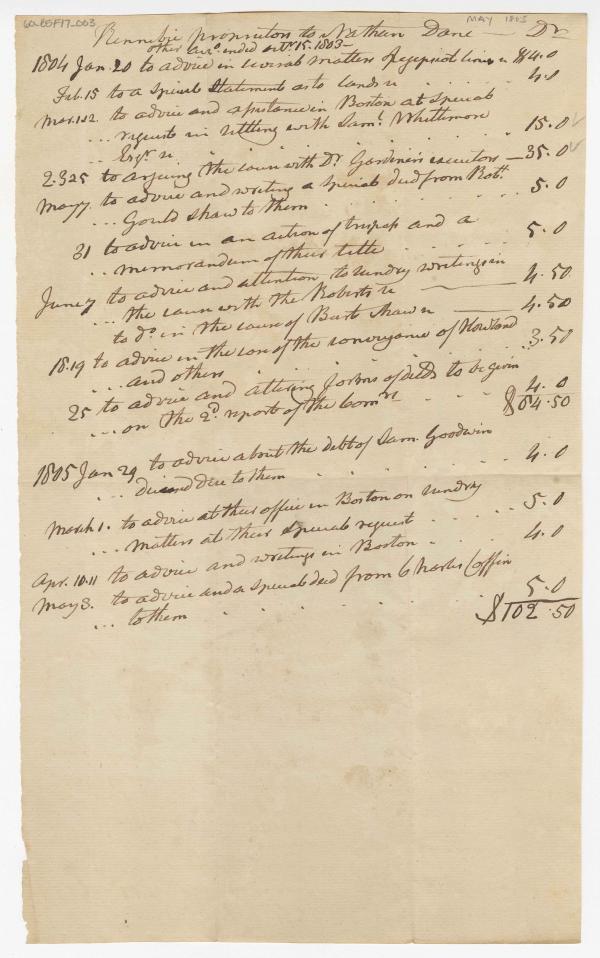 60.B5F17_003
MAY 1803
Kennebic proprietors to Nathan Dane — Dr
other acco. ended octr. 15. 1803 —
1804 Jan. 20 to advice in several matters lines $4.0
Feb. 15 to a special Statement as to lands 4.0
Mar. 1.2 to advice and assistance in Boston at special
... request in settling with Saml. Whittmore
... Esqr. 15.0
2.3 25 to arguing the caus with Dr. Gardiners executors — 35.0
May 7 to advice and writing a special deed from Robt.
... Gould Shaw to them 5.0
31 to advice in an action of trespass and a
... memorandum of their title 5.0
June 7 to advice and attention to sundry writings in
... the caus with the Roberts — 4.50
to do. in the caus of Shaw — 4.50
18.19 to advice in the of the conveyance of Howland
... and others 3.50
25 to advice and altering forms of deeds to be given
... on the 2d. report of the Comrs. 4.0
$84.50
1805 Jan 29 to advice about the debt of Sam. Goodwin
... due to them 4.0
March 1. to advice at their office in Boston on sundry
... matters at their special request 5.0
Apr. 10.11 to advice and writings in Boston 4.0
May 3. to advice and a special deed from Charles Coffin
... to them 5.0
$102.50